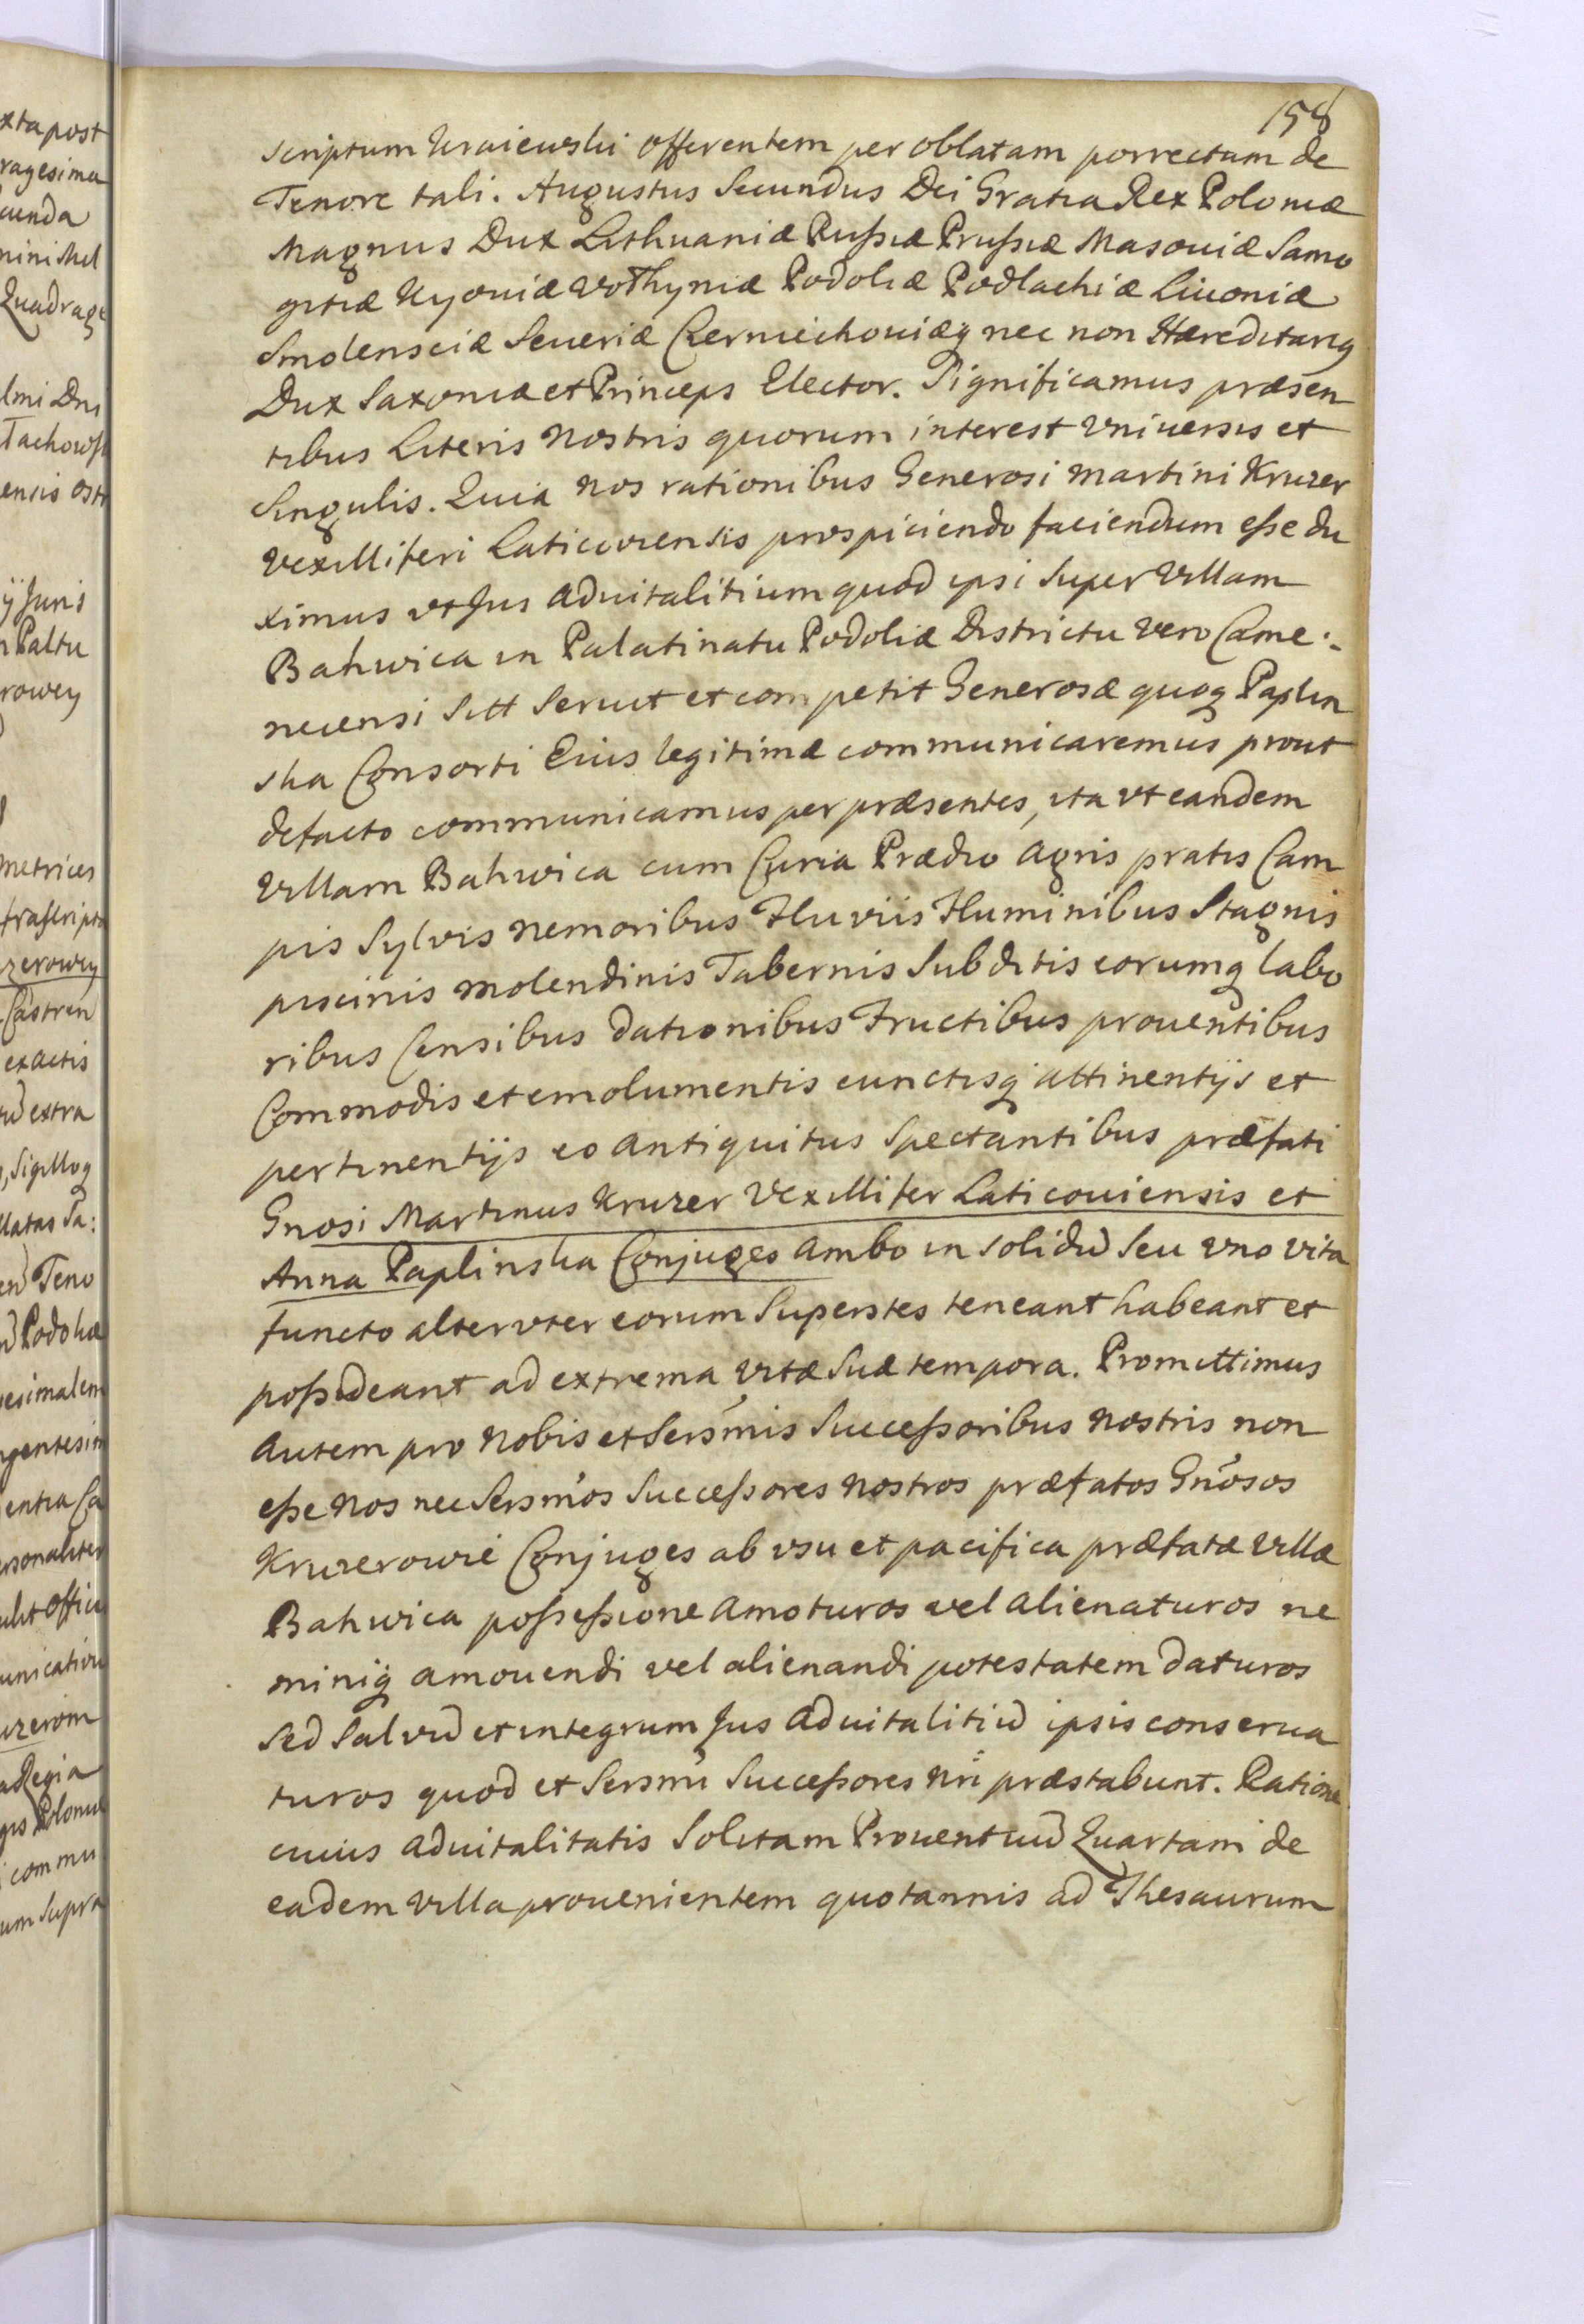 158
scriptum Kraiewski offerentem per oblatam porrectam de
Tenore tali. Augustus Secundus Dei Gratia Rex Poloniæ
Magnus Dux Lithuaniæ Rußiæ Prußiæ Masouiæ Samo
gitiæ Kyouiæ Volhyniæ Podoliæ Podlachiæ Liuoniæ
Smolensciæ Seueriæ Czerniechouiæq nec non Hæreditariq
Dux Saxoniæ et Princeps Elector. Significamus præsen
tibus Literis Nostris quorum interest Vniuersis et
Singulis. Quia Nos rationibus Generosi Martini Kruzer
Vexilliferi Laticzouiensis prospiciendo faciendum eße du
ximus vt Jus aduitalitium quod ipsi Super Villam
Bakwica in Palatinatu Podoliæ Districtu vero Came:
necensi Sitt Seruit et competit Generosæ quoq Paplin
ska Consorti Eius legitimæ communicaremus prout
defacto communicamus per præsentes, ita vt eandem
Villam Bakwica cum Curia Prædio agris pratis Cam
pis Sylvis nemoribus Fluviis Fluminibus Stagnis
piscinis molendinis Tabernis Subditis eorumq labo
ribus Censibus dationibus Fructibus prouentibus
Commodis et emolumentis cunctisq attinentijs et
pertinentijs eo antiquitus Spectantibus præfati
Gnosi Martinus Kruzer Vexillifer Laticouiensis et
Anna Paplinska Conjuges ambo in solidū Seu vno vita
functo alter vter eorum Superstes teneant habeant et
poßideant ad extrema vitæ Suæ tempora. Promittimus
autem pro Nobis et Sersmis Succeßoribus Nostris non
eße Nos nec Sersmos Succeßores Nostros præfatos Gnosos
Kruzerowie Conjuges ab vsu et pacifica præfatæ Villæ
Bakwica poßeßione amoturos vel alienaturos ne
miniq amouendi vel alienandi potestatem daturos
Sed Salvū et integrum Jus aduitalitiū ipsis conserua
turos quod et Sersmi Succeßores nri præstabunt. Ratione
cuius aduitalitatis Solitam Prouentuū Quartam de
eadem Villa prouenientem quotannis ad Thesaurum